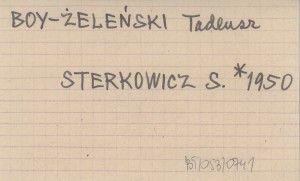 BOY-ŻELEŃSKI Tadeusz
STERKOWICZ S. *1950